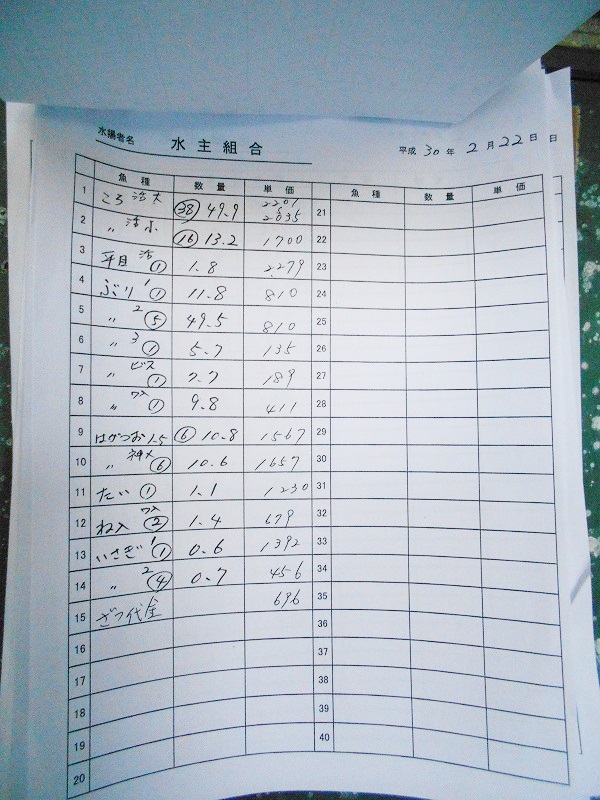 水揚者名 水主組合 平成 30 年 2 月 22 日 日
魚種 数量 単価 魚種 数量 単価
1 ころ 活大 (38) 49.9 2201 2035 21
2 〃 活小 (16) 13.2 1700 22
3 平目 活 (1) 1.8 2279 23
4 ぶり 1 (1) 11.8 810 24
5 〃 2 (5) 49.5 810 25
6 〃 3 (1) 5.7 135 26
7 〃 ビス (1) 7.7 189 27
8 〃 ワケ (1) 9.8 411 28
9 はがつお 1.5 (6) 10.8 1567 29
10 〃 (6) 10.6 1657 30
11 たい (1) 1.1 1230 31
12 (2) 1.4 679 32
13 いさぎ 1 (1) 0.6 1392 33
14 〃 2 (4) 0.7 456 34
15 ざつ代金 696 35
16 36
17 37
18 38
19 39
20 40